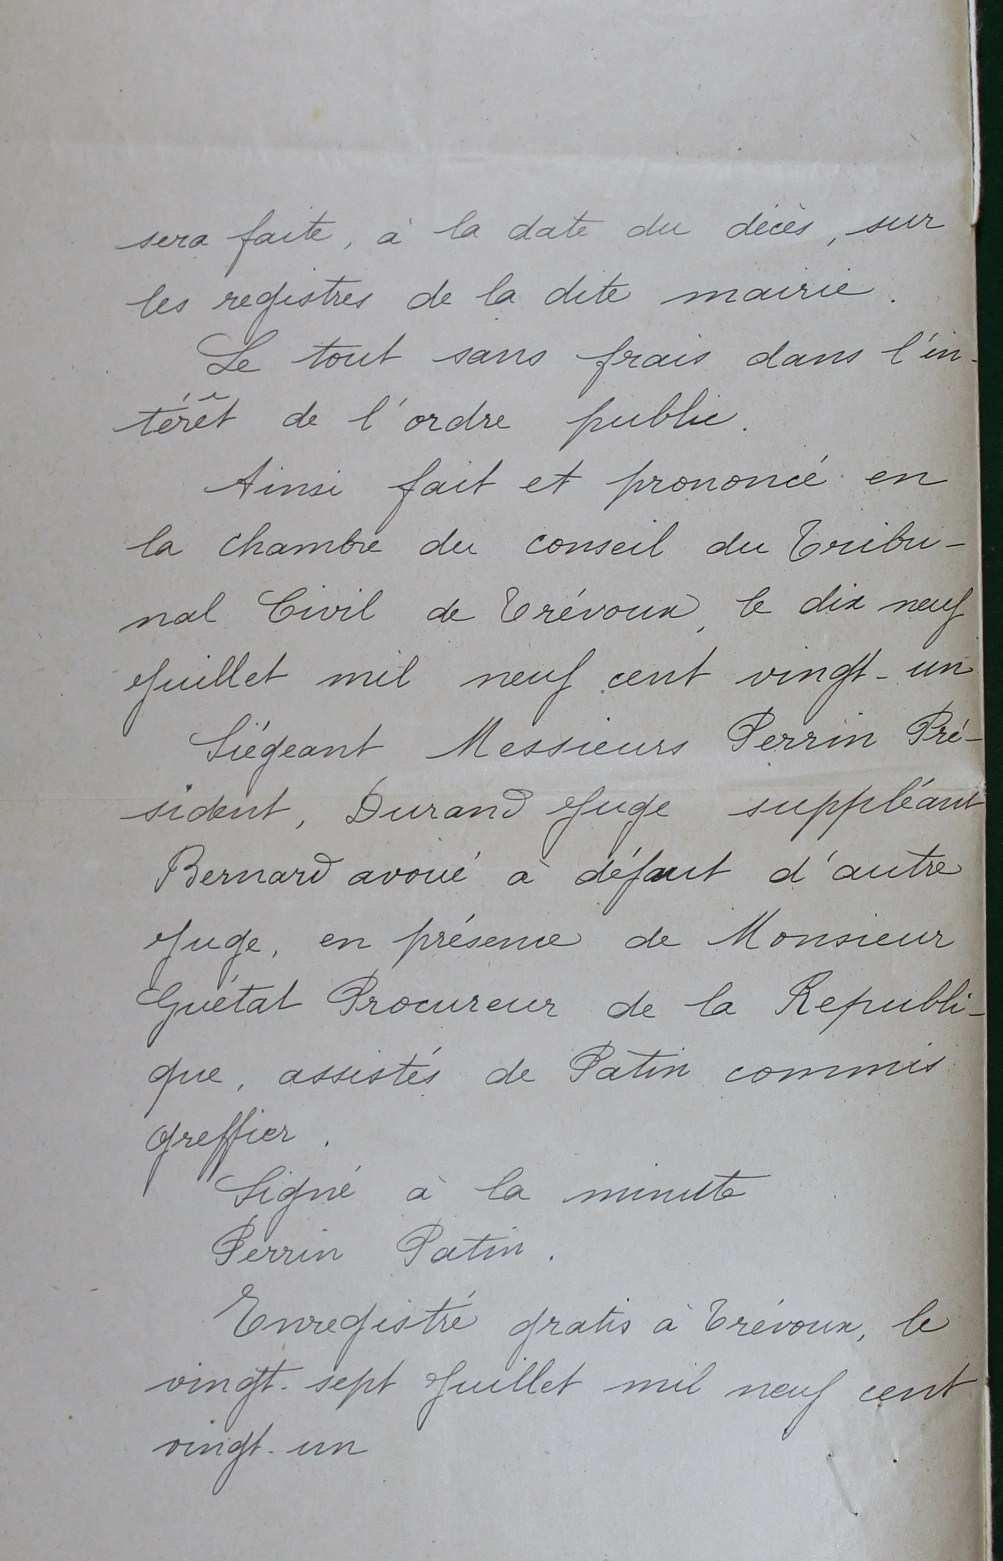 sera faite, à la date du décès, sur
les registres de la dite mairie.
Le tout sans frais dans l'in-
térêt de l'ordre public.
Ainsi fait et prononcé en
la chambre du conseil du Tribu-
nal Civil de Trévoux, le dix neuf
Juillet mil neuf cent vingt-un
Siégeant Messieurs Perrin Pré-
sident, Durand Juge suppléant
Bernard avoué à défaut d'autre
Juge, en présence de Monsieur
Guétat Procureur de la Republi-
que, assistés de Patin commis
Greffier.
Signé à la minute
Perrin Patin.
Enregistré gratis à Trévoux, le
vingt-sept Juillet mil neuf cent
vingt-un